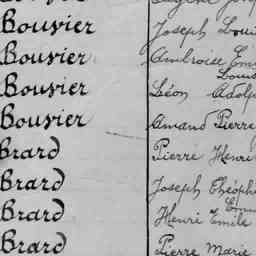 Bouvier Joseph Loui
Bouvier Ambroise Em
Louis
Bouvier Léon Adolp
Bouvier Amand Pierre
Brard Pierre Henri
Brard Joseph Théophi
Emm
Brard Henri Emile
Brard Pierre Marie